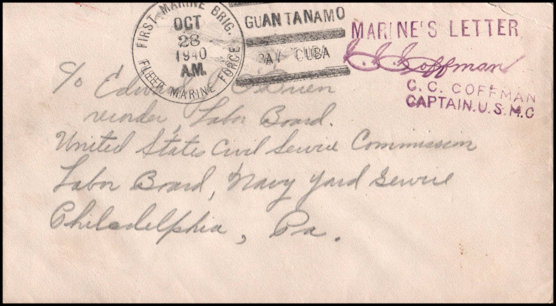 FIRST MARINE BRIG.
OCT
28
1940
A.M.
FLEET MARINE FORCE
GUANTANAMO
BAY CUBA
MARINE'S LETTER
C. C. Coffman
C. C. COFFMAN
CAPTAIN. U. S. M. C
% Edw
recorder, Labor Board.
United States Civil Service Commission
Labor Board, Navy Yard Service
Philadelphia, Pa.